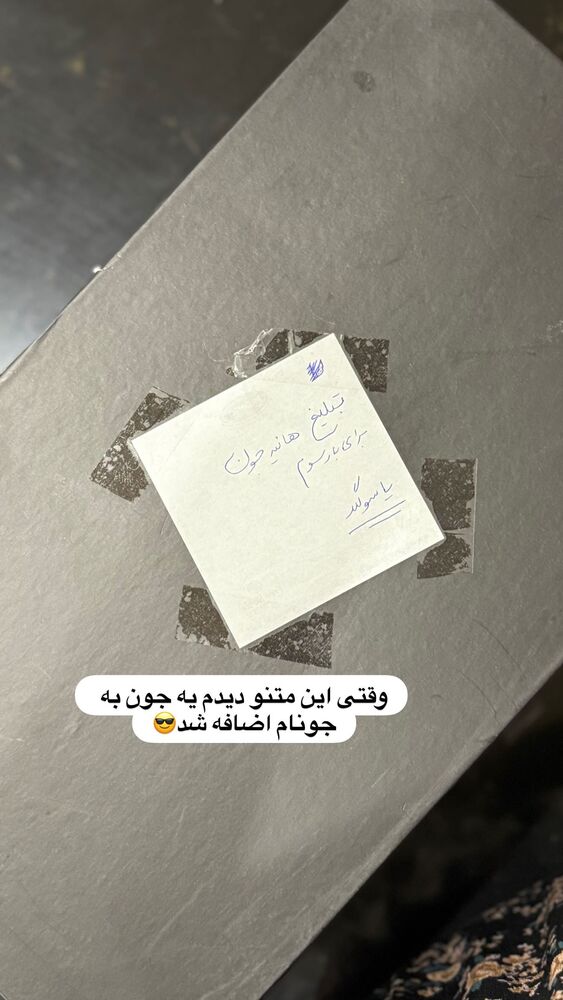 تبلیغ هانیه جون
برای بار سوم
یا سوگند
وقتی این متنو دیدم یه جون به
جونام اضافه شد😎